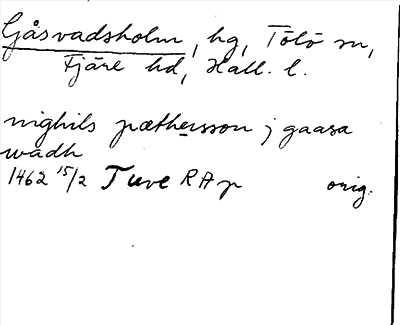 Gåsvadsholm, hg, Tölö sn,
Fjäre hd, Hall. l.
nighils pæthersson j gaasa
wadh
1462 15/2 Tuve RAp orig.